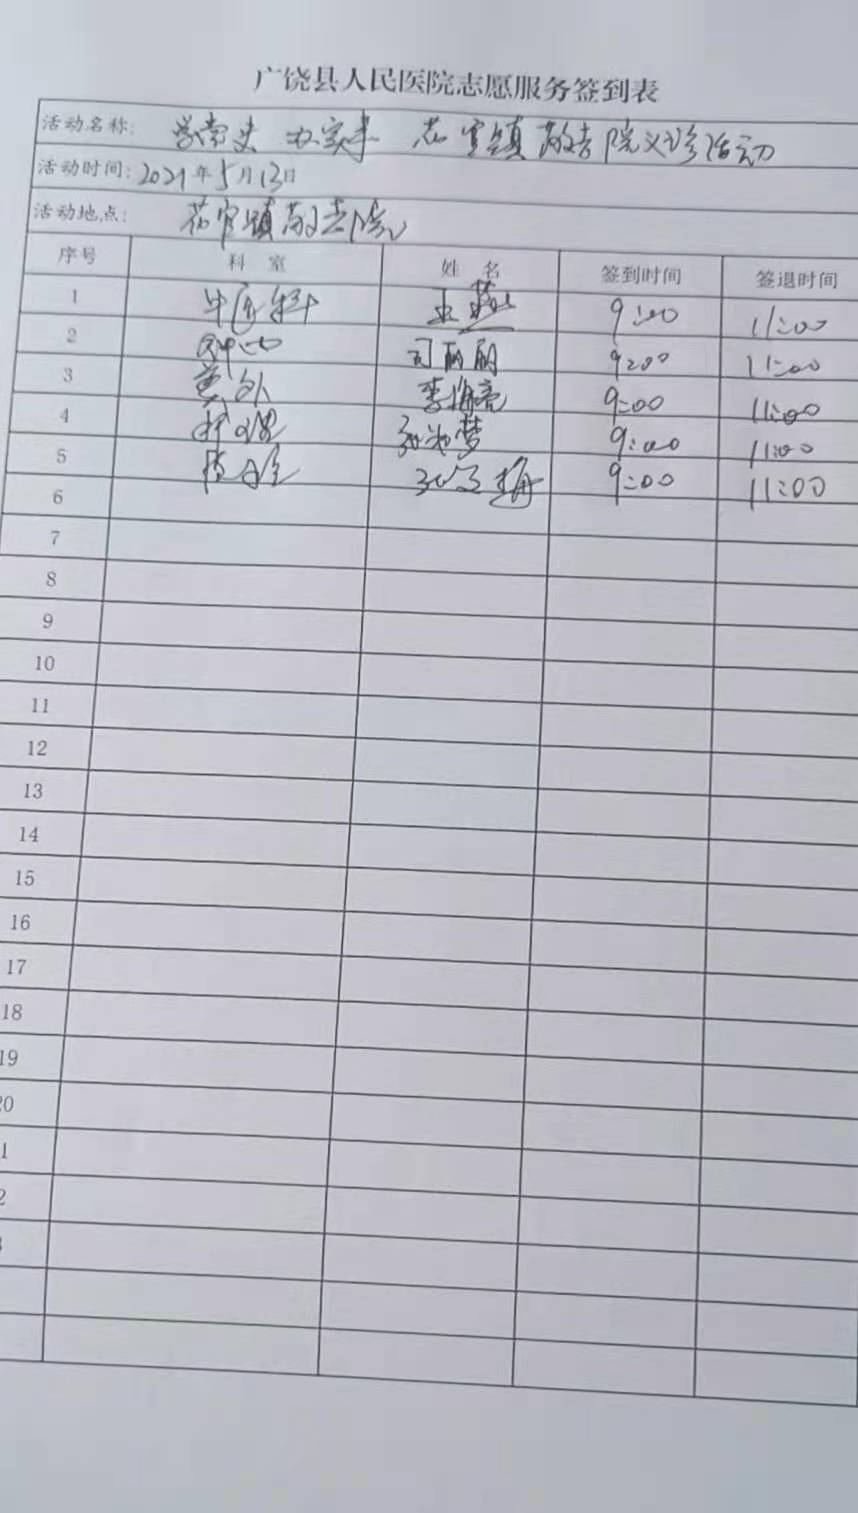 广饶县人民医院志愿服务签到表
活动名称: 学党史 办实事 花官镇敬老院义诊活动
活动时间: 2021年5月13日
活动地点: 花官镇敬老院
序号 科室 姓名 签到时间 签退时间
1 中医科 王燕 9:00 11:00
2 司丽丽 9:00 11:00
3 普外 李 亮 9:00 11:00
4 梦 9:00 11:00
5 9:00 11:00
6
7
8
9
10
11
12
13
14
15
16
17
18
19
20
1
2